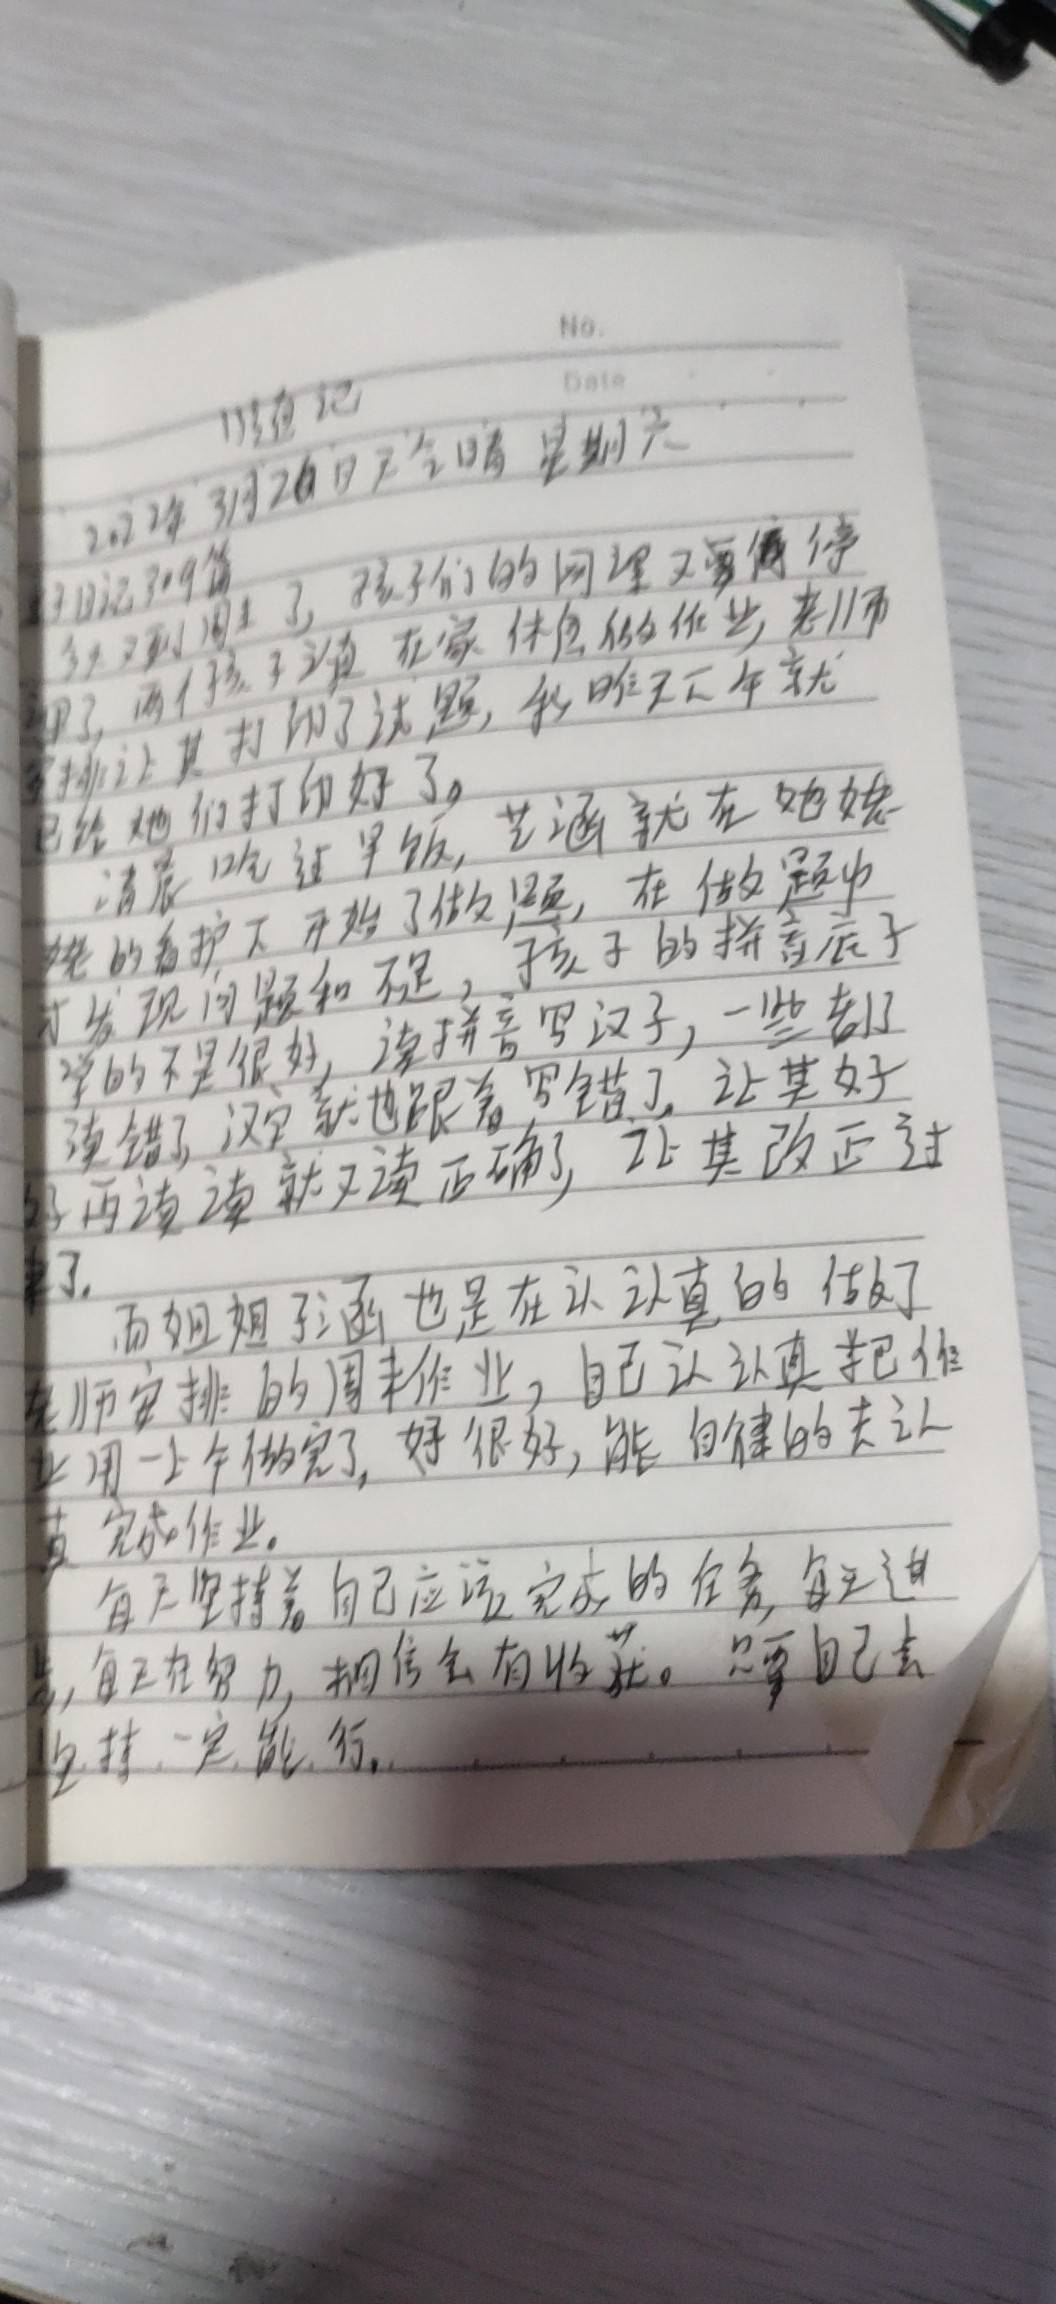 No.
Date
随记
2022年3月26日天气晴 星期六
亲子日记309篇
今天又到周末了，孩子们的网课又要停
课了，两个孩子 在家休息做作业，老师
安排让其打印了试题，我昨天下午就
已给她们打印好了。
清晨吃过早饭，艺涵就在她姥
姥的看护下开始了做题，在做题中
才发现问题和不足，孩子的拼音底子
学的不是很好，读拼音写汉子，一些都
读错了，汉字就也跟着写错了，让其好
好再读读就又读正确了，让其改正过
来了。
而姐姐子涵也是在认认真的做了
老师安排的周末作业，自己认认真把作
业用一上午做完了，好很好，能自律的去认
真完成作业。
每天坚持着自己应该完成的任务，每天进
步，每天在努力，相信会有收获。只要自己去
坚持一定能行。